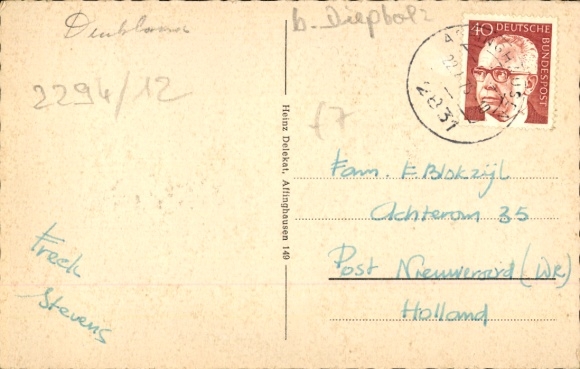 b. Diepholz
2294/12
f7
40 DEUTSCHE BUNDESPOST
2831
Heinz Delekat, Affinghausen 149
Fam. E Blokzijl
Achterom 35
Post Nieuweroord (WR)
Holland
Freek
Stevens